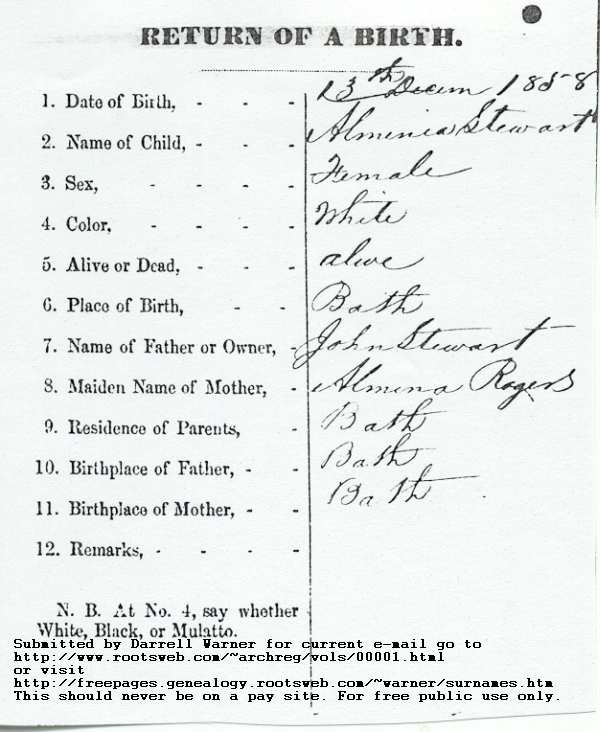 RETURN OF A BIRTH.
1. Date of Birth, - - - 13th Decem 1858
2. Name of Child, - - - Alminia Stewart
3. Sex, - - - Female
4. Color, - - - White
5. Alive or Dead, - - - alive
6. Place of Birth, - - Bath
7. Name of Father or Owner, - John Stewart
8. Maiden Name of Mother, - Almina Rogers
9. Residence of Parents, - Bath
10. Birthplace of Father, - - Bath
11. Birthplace of Mother, - - Bath
12. Remarks, - - - -
N. B. At No. 4, say whether
White, Black, or Mulatto.
Submitted by Darrell Warner for current e-mail go to
http://www.rootsweb.com/~archreg/vols/00001.html
or visit
http://freepages.genealogy.rootsweb.com/~warner/surnames.htm
This should never be on a pay site. For free public use only.